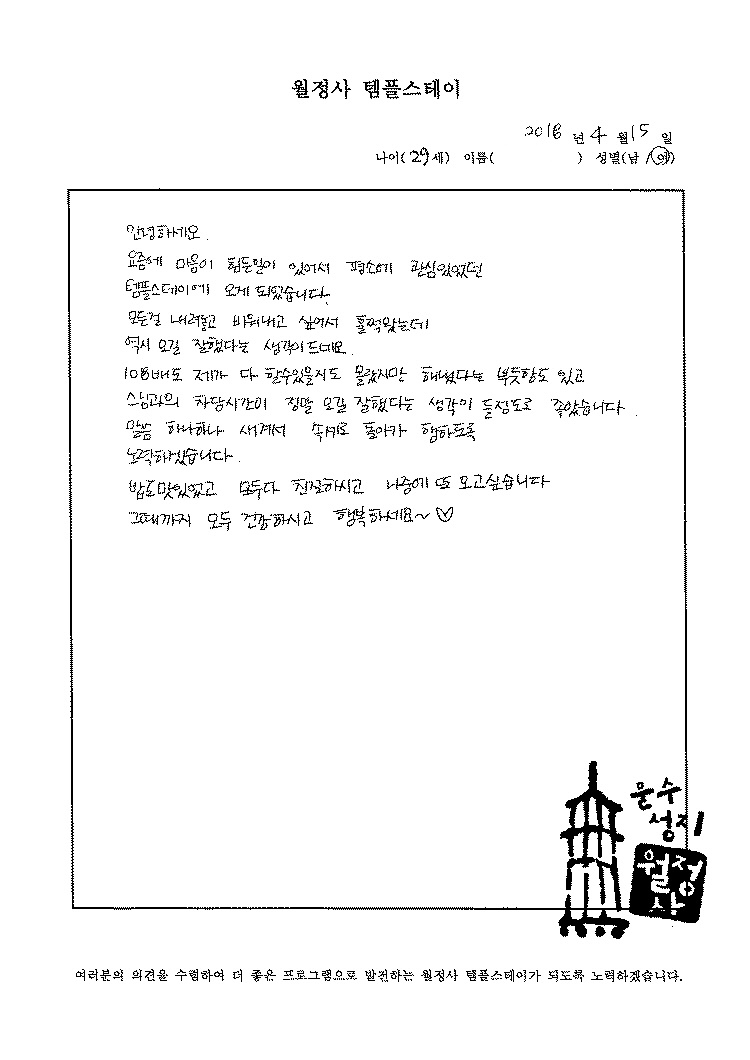 월정사 템플스테이
2018 년 4 월 15 일
나이( 29 세) 이름( ) 성별(남 / 여)
안녕하세요.
요즘에 마음이 힘든일이 있어서 평소에 관심있었던
템플스테이에 오게 되었습니다.
모든걸 내려놓고 비워내고 싶어서 훌쩍왔는데
역시 오길 잘했다는 생각이 드네요.
108배도 제가 다 할수있을지도 몰랐지만 해냈다는 뿌듯함도 있고
스님과의 차담시간이 정말 오길 잘했다는 생각이 들정도로 좋았습니다.
말씀 하나하나 새겨서 속세로 돌아가 행하도록
노력하겠습니다.
밥도맛있었고 모두다 친절하시고 나중에 또 오고싶습니다
그때까지 모두 건강하시고 행복하세요~ ♡
문수
성지
월정
사
여러분의 의견을 수렴하여 더 좋은 프로그램으로 발전하는 월정사 템플스테이가 되도록 노력하겠습니다.